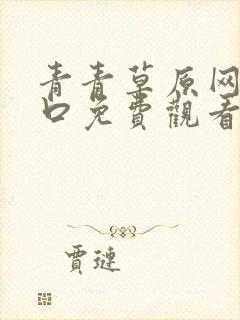 青青草原网
口免費觀看
賈璉